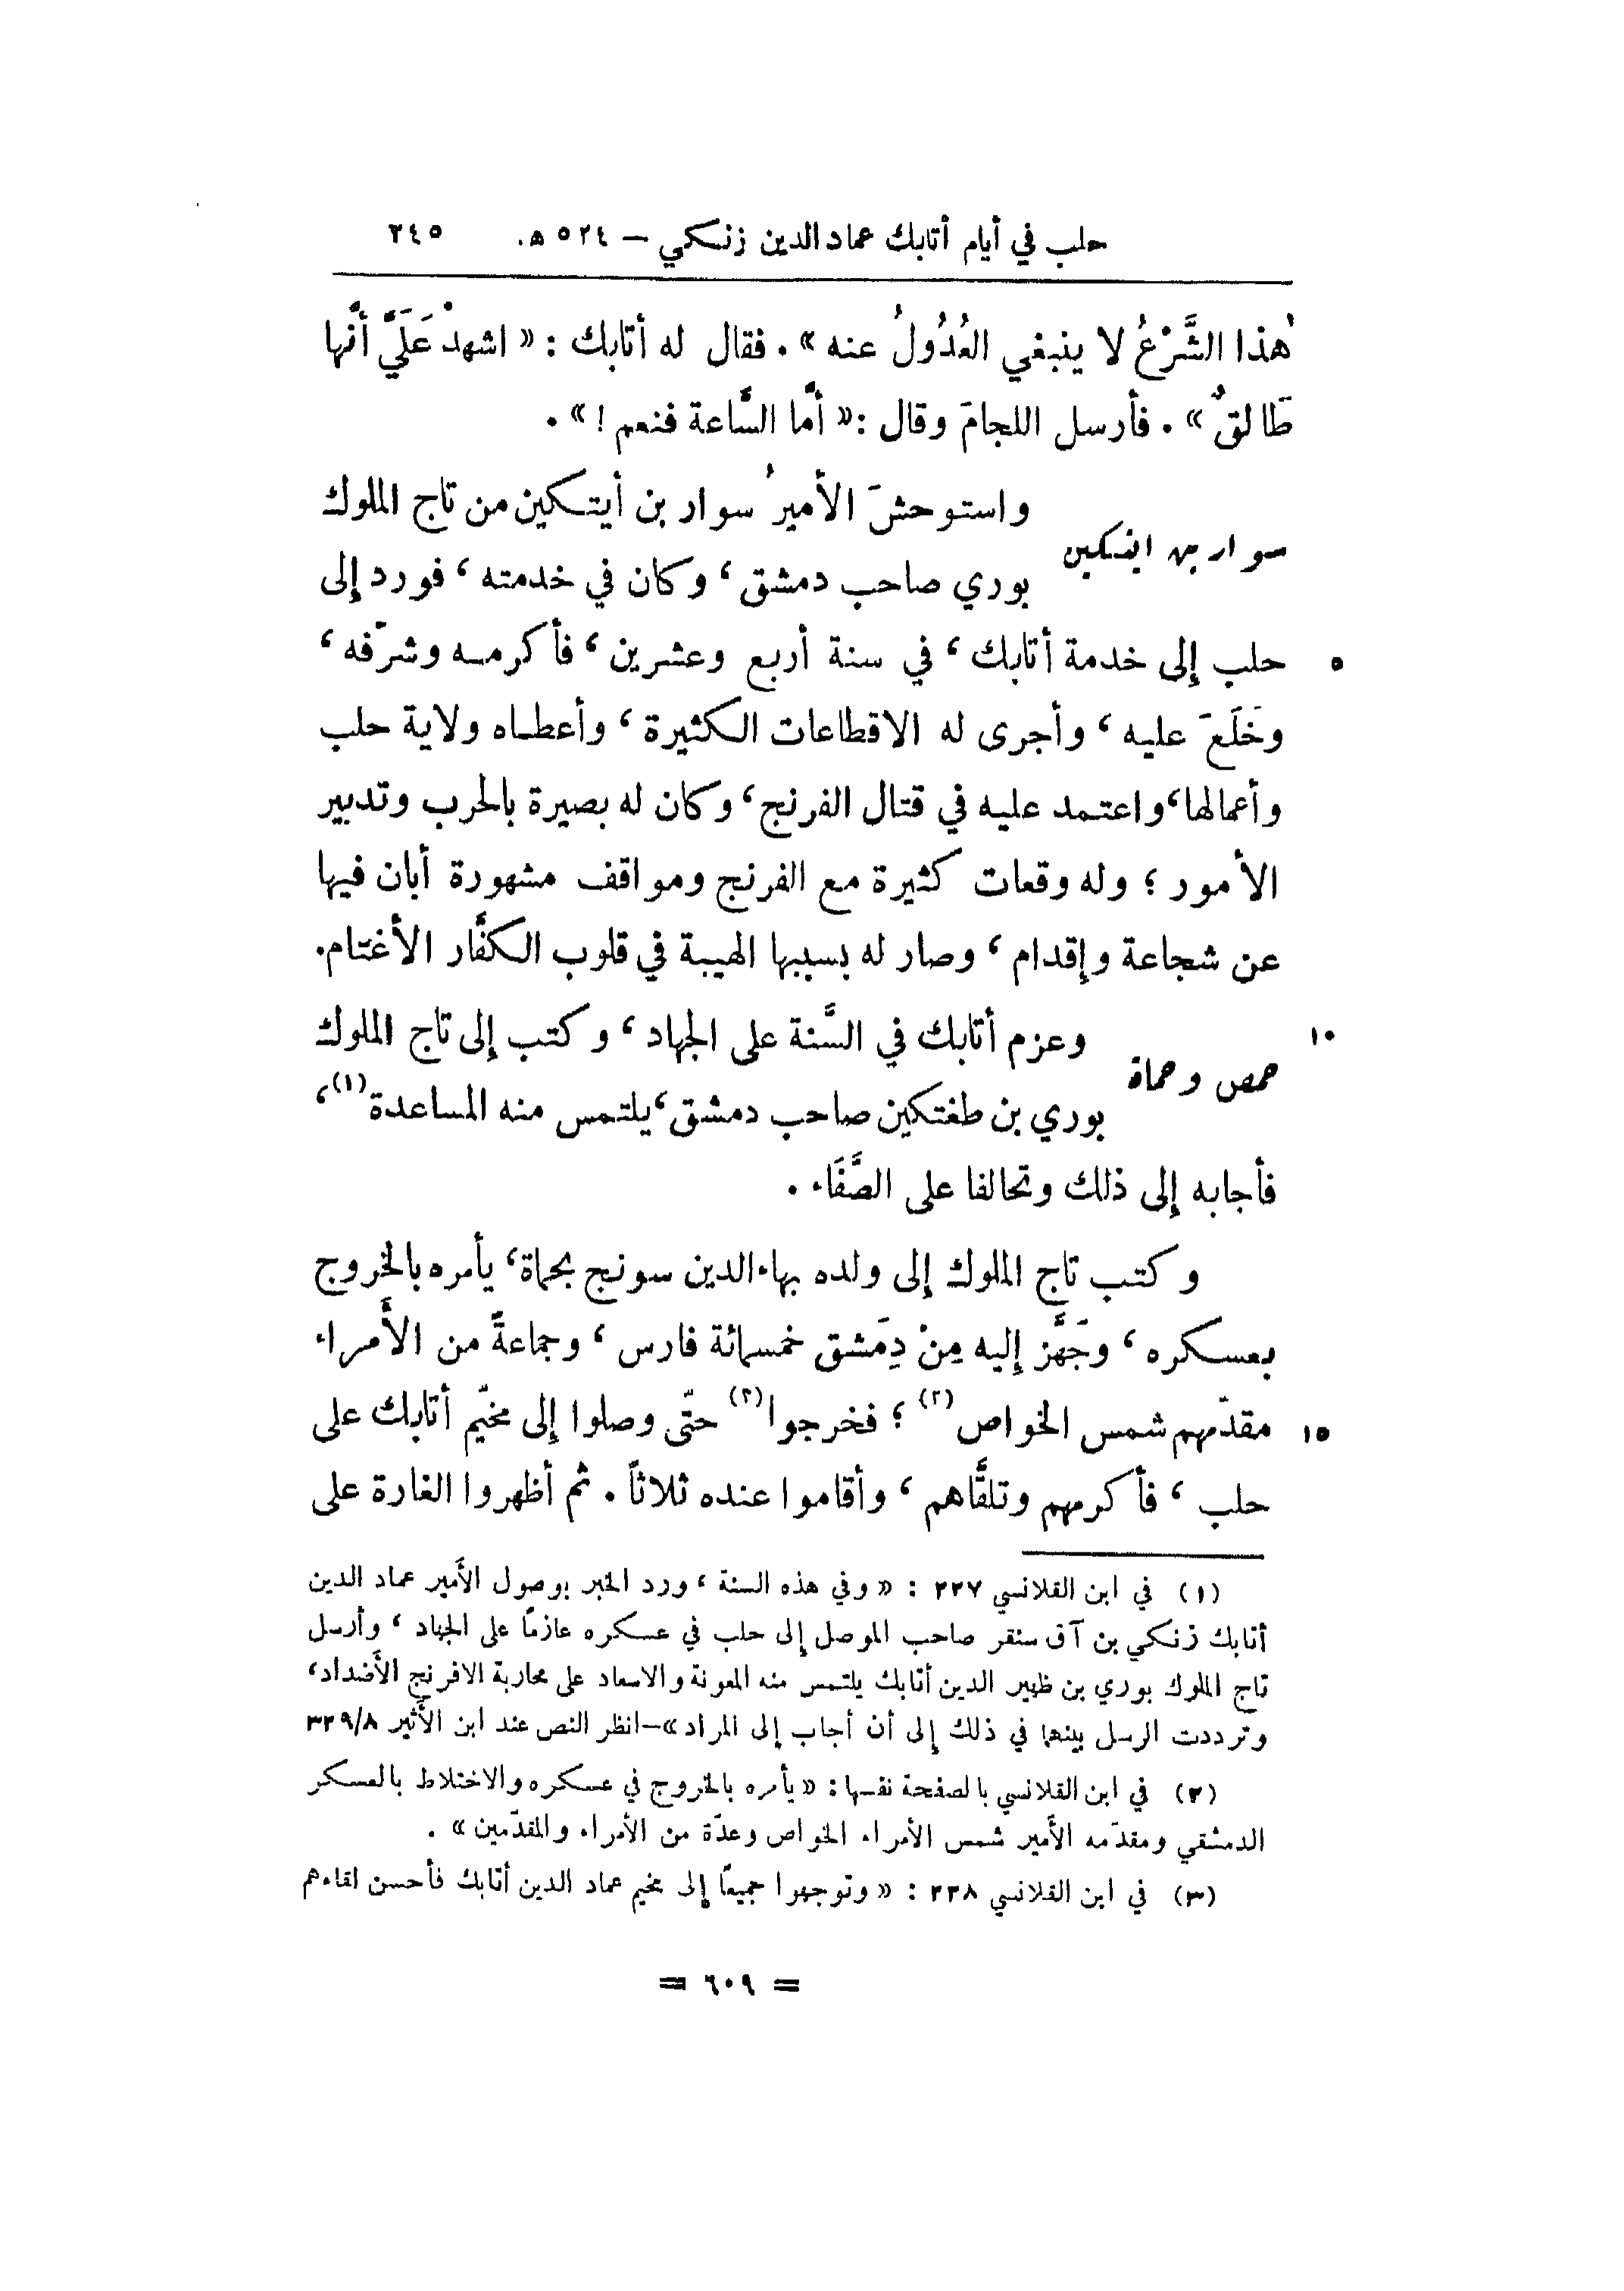 حلب في أيام أتابك عماد الدين زنكي – ٥٢٤ هـ. ٢٤٥
هٰذا الشَّرْعُ لا ينبغي العُدُولُ عنه» . فقال له أتابك : « اشهدْ عَلَيَّ أنَّها
طَالقٌ» . فأرسل اللجامَ وقال :« أمَّا السَّاعة فنعم !» .
سوار بن ايتكين
واستوحشَ الأميرُ سوار بن أيتكين من تاج الملوك
بوري صاحب دمشق ، وكان في خدمته ، فورد إلى
٥ حلب إلى خدمة أتابك ، في سنة أربع وعشرين ، فأكرمه وشرّفه ،
وخَلَعَ عليه ، وأجرى له الاقطاعات الكثيرة ، وأعطاه ولاية حلب
وأعمالها،واعتمد عليه في قتال الفرنج ، وكان له بصيرة بالحرب وتدبير
الأمور ؛ وله وقعات كثيرة مع الفرنج ومواقف مشهورة أبان فيها
عن شجاعة وإقدام ، وصار له بسببها الهيبة في قلوب الكفَّار الأغتام.
حمص وحماة
١٠ وعزم أتابك في السَّنة على الجهاد ، وكتب إلى تاج الملوك
بوري بن طغتكين صاحب دمشق ،يلتمس منه المساعدة(١)،
فأجابه إلى ذلك وتحالفا على الصَّفَاء .
وكتب تاج الملوك إلى ولده بهاء الدين سونج بحماة ، يأمره بالخروج
بعسكره ، وجَهَّز إليه مِنْ دِمَشق خمسمائة فارس ، وجماعةً من الأُمراء
١٥ مقدّمهم شمس الخواص(٢) ؛ فخرجوا(٣) حتّى وصلوا إلى مخيّم أتابك على
حلب ، فأكرمهم وتلقَّاهم ، وأقاموا عنده ثلاثاً . ثم أظهروا الغارة على
(١) في ابن القلانسي ٢٢٧ : « وفي هذه السنة ، ورد الخبر بوصول الأمير عماد الدين
أتابك زنكي بن آق سنقر صاحب الموصل إلى حلب في عسكره عازمًا على الجهاد ، وأرسل
تاج الملوك بوري بن ظهير الدين أتابك يلتمس منه المعونة والاسعاد على محاربة الافرنج الأضداد ،
وترددت الرسل بينهما في ذلك إلى أن أجاب إلى المراد »–انظر النص عند ابن الأثير ٣٢٩/٨
(٢) في ابن القلانسي بالصفحة نفسها : « يأمره بالخروج في عسكره والاختلاط بالعسكر
الدمشقي ومقدّمه الأمير شمس الأمراء الخواص وعدّة من الأمراء والمقدّمين » .
(٣) في ابن القلانسي ٢٢٨ : « وتوجهوا جميعًا إلى مخيم عماد الدين أتابك فأحسن لقاءهم
= ٦٠٩ =